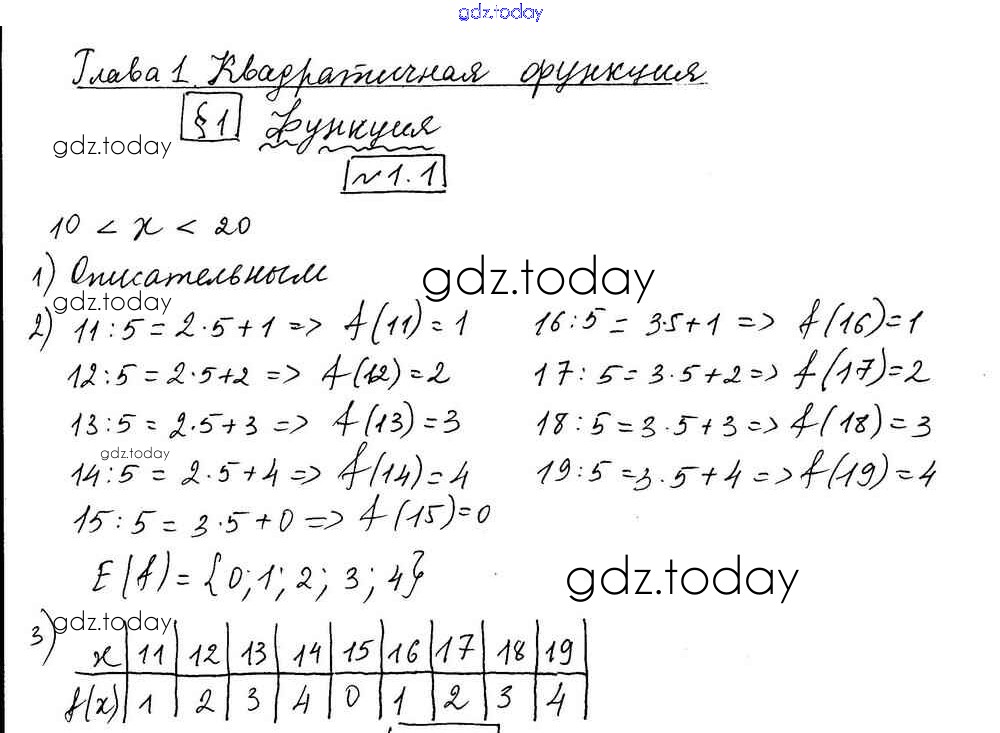 gdz.today
Глава 1. Квадратичная функция
§1 Функция
gdz.today
№1.1
10 < x < 20
1) Описательным
gdz.today
gdz.today
2) 11:5 = 2·5+1 => f(11)=1 16:5 = 3·5+1 => f(16)=1
12:5 = 2·5+2 => f(12)=2 17:5 = 3·5+2 => f(17)=2
13:5 = 2·5+3 => f(13)=3 18:5 = 3·5+3 => f(18)=3
gdz.today
14:5 = 2·5+4 => f(14)=4 19:5 = 3·5+4 => f(19)=4
15:5 = 3·5+0 => f(15)=0
E(f) = {0; 1; 2; 3; 4}
gdz.today
3) gdz.today
x 11 12 13 14 15 16 17 18 19
f(x) 1 2 3 4 0 1 2 3 4